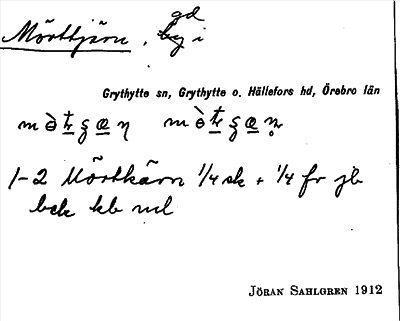 Mörttjärn, gd i
Grythytte sn, Grythytte o. Hällefors hd, Örebro län
1-2 Mörtkärn 1/4 sk + 1/4 fr jb
bck kb ml
JÖRAN SAHLGREN 1912